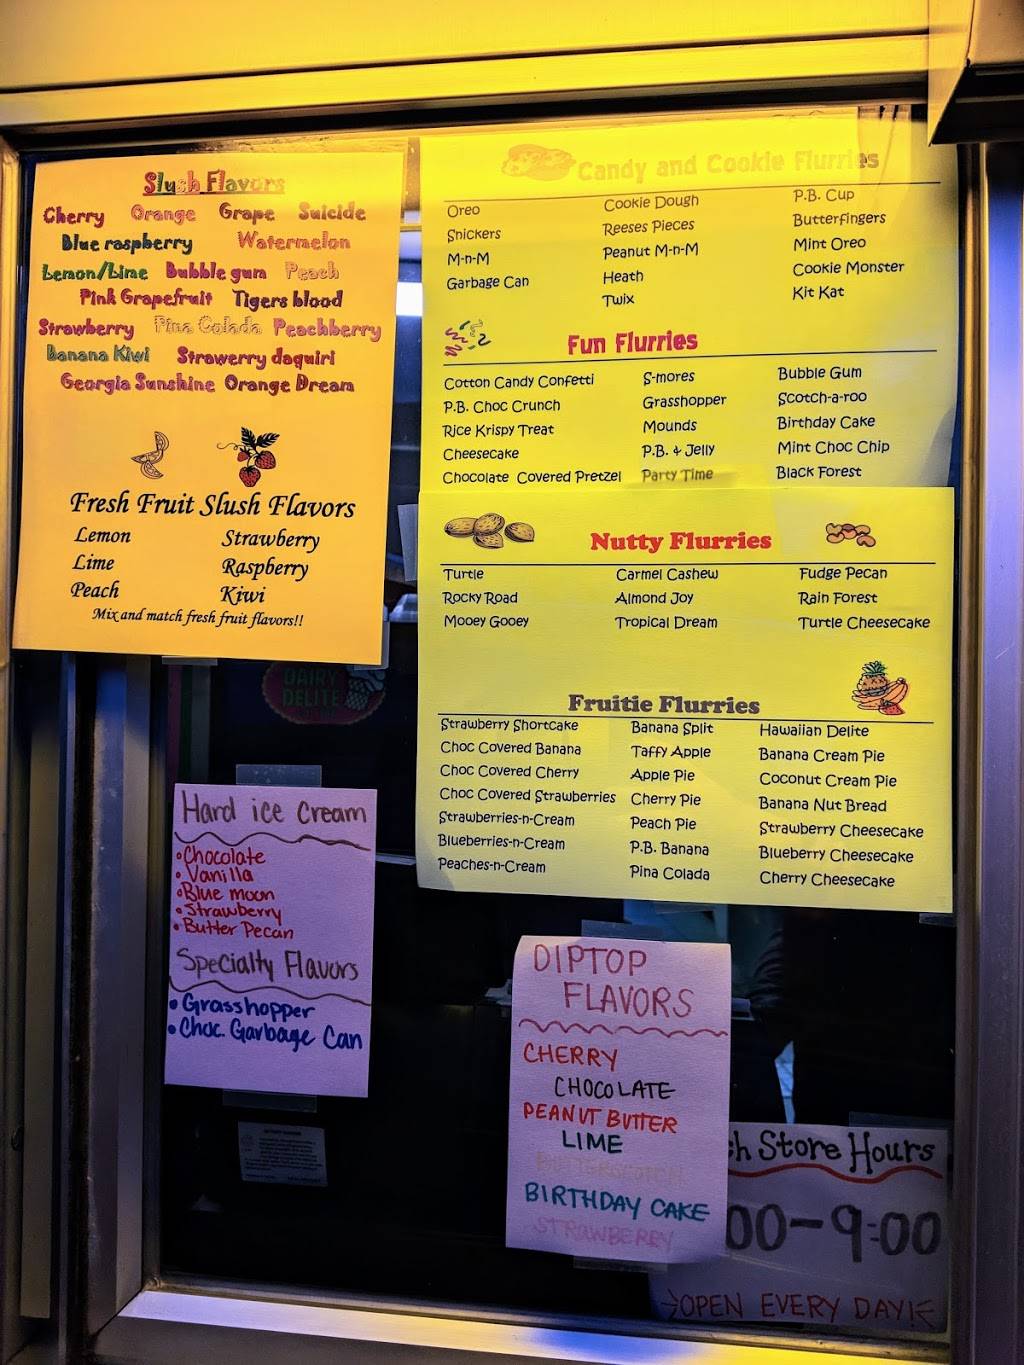 Slush Flavors
Cherry Orange Grape Suicide
Blue raspberry Watermelon
Lemon/Lime Bubble gum Peach
Pink Grapefruit Tigers blood
Strawberry Pina Colada Peachberry
Banana Kiwi Strawerry daquiri
Georgia Sunshine Orange Dream
Fresh Fruit Slush Flavors
Lemon Strawberry
Lime Raspberry
Peach Kiwi
Mix and match fresh fruit flavors!!
Candy and Cookie Flurries
Oreo Cookie Dough P.B. Cup
Snickers Reeses Pieces Butterfingers
M-n-M Peanut M-n-M Mint Oreo
Garbage Can Heath Cookie Monster
Twix Kit Kat
Fun Flurries
Cotton Candy Confetti S-mores Bubble Gum
P.B. Choc Crunch Grasshopper Scotch-a-roo
Rice Krispy Treat Mounds Birthday Cake
Cheesecake P.B. & Jelly Mint Choc Chip
Chocolate Covered Pretzel Party Time Black Forest
Nutty Flurries
Turtle Carmel Cashew Fudge Pecan
Rocky Road Almond Joy Rain Forest
Mooey Gooey Tropical Dream Turtle Cheesecake
Fruitie Flurries
Strawberry Shortcake Banana Split Hawaiian Delite
Choc Covered Banana Taffy Apple Banana Cream Pie
Choc Covered Cherry Apple Pie Coconut Cream Pie
Choc Covered Strawberries Cherry Pie Banana Nut Bread
Strawberries-n-Cream Peach Pie Strawberry Cheesecake
Blueberries-n-Cream P.B. Banana Blueberry Cheesecake
Peaches-n-Cream Pina Colada Cherry Cheesecake
DAIRY
DELITE
Hard ice Cream
•Chocolate
•Vanilla
•Blue moon
•Strawberry
•Butter Pecan
Specialty Flavors
•Grasshopper
•Choc. Garbage Can
DIPTOP
FLAVORS
CHERRY
CHOCOLATE
PEANUT BUTTER
LIME
BUTTERSCOTCH
BIRTHDAY CAKE
STRAWBERRY
h Store Hours
00-9:00
OPEN EVERY DAY!